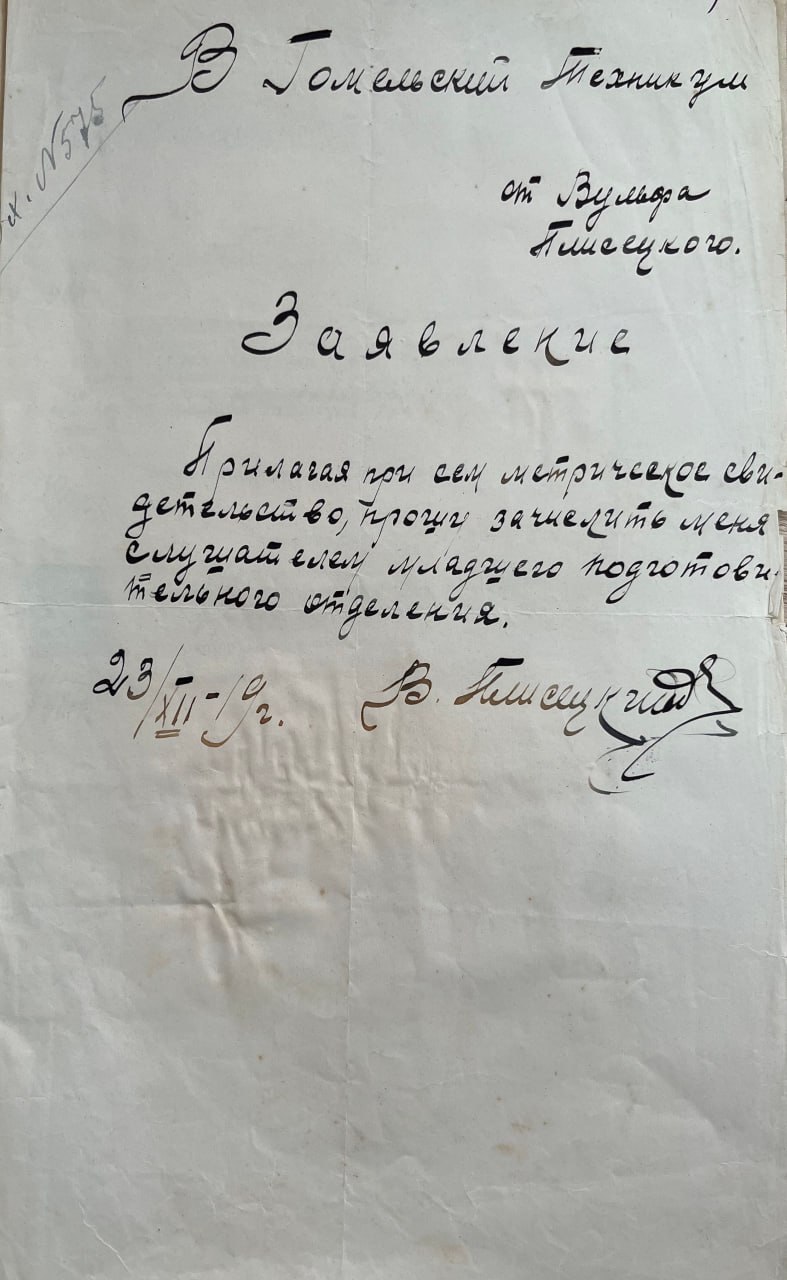 В Гомельский Техникум
х. №575
от Вульфа
Плисецкого.
Заявление
Прилагая при сем метрическое сви-
детельство, прошу зачислить меня
слушателем младшего подготови-
тельного отделения.
23/XII-19г. В. Плисецкий